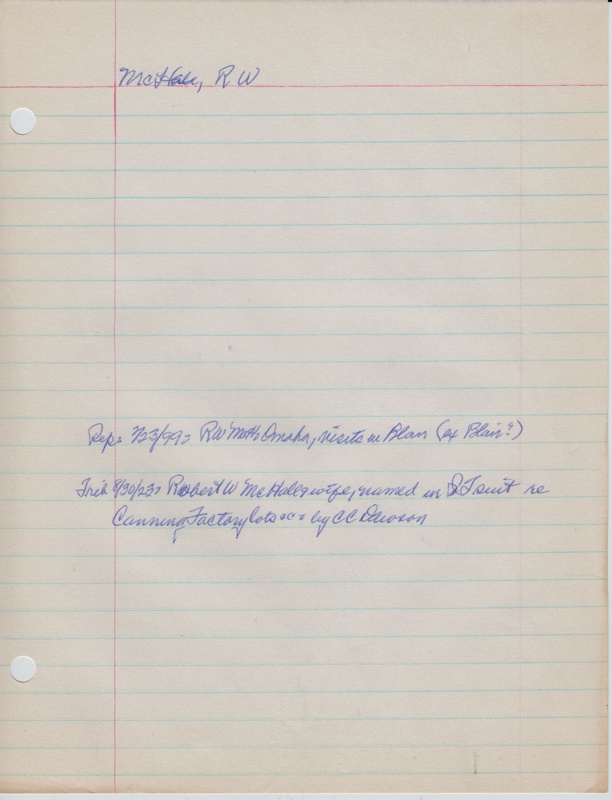 McHale, R W
Rep: 7/23/99: R W McH Omaha, visits in Blair (ex Blair?)
Trib 8/30/23: Robert W McHale & wife, named in QT suit re
Canning Factory lots by CC Dawson